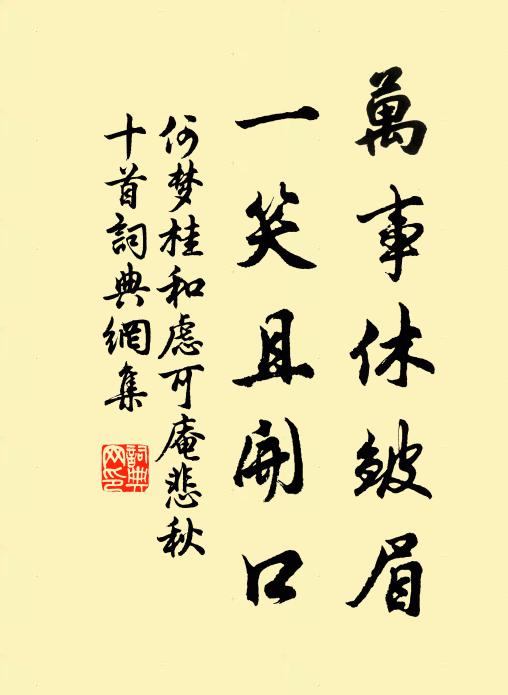 萬事休皺眉
一笑且開口
何梦桂和慮可庵悲秋
十首詞典網集
詞典
网印